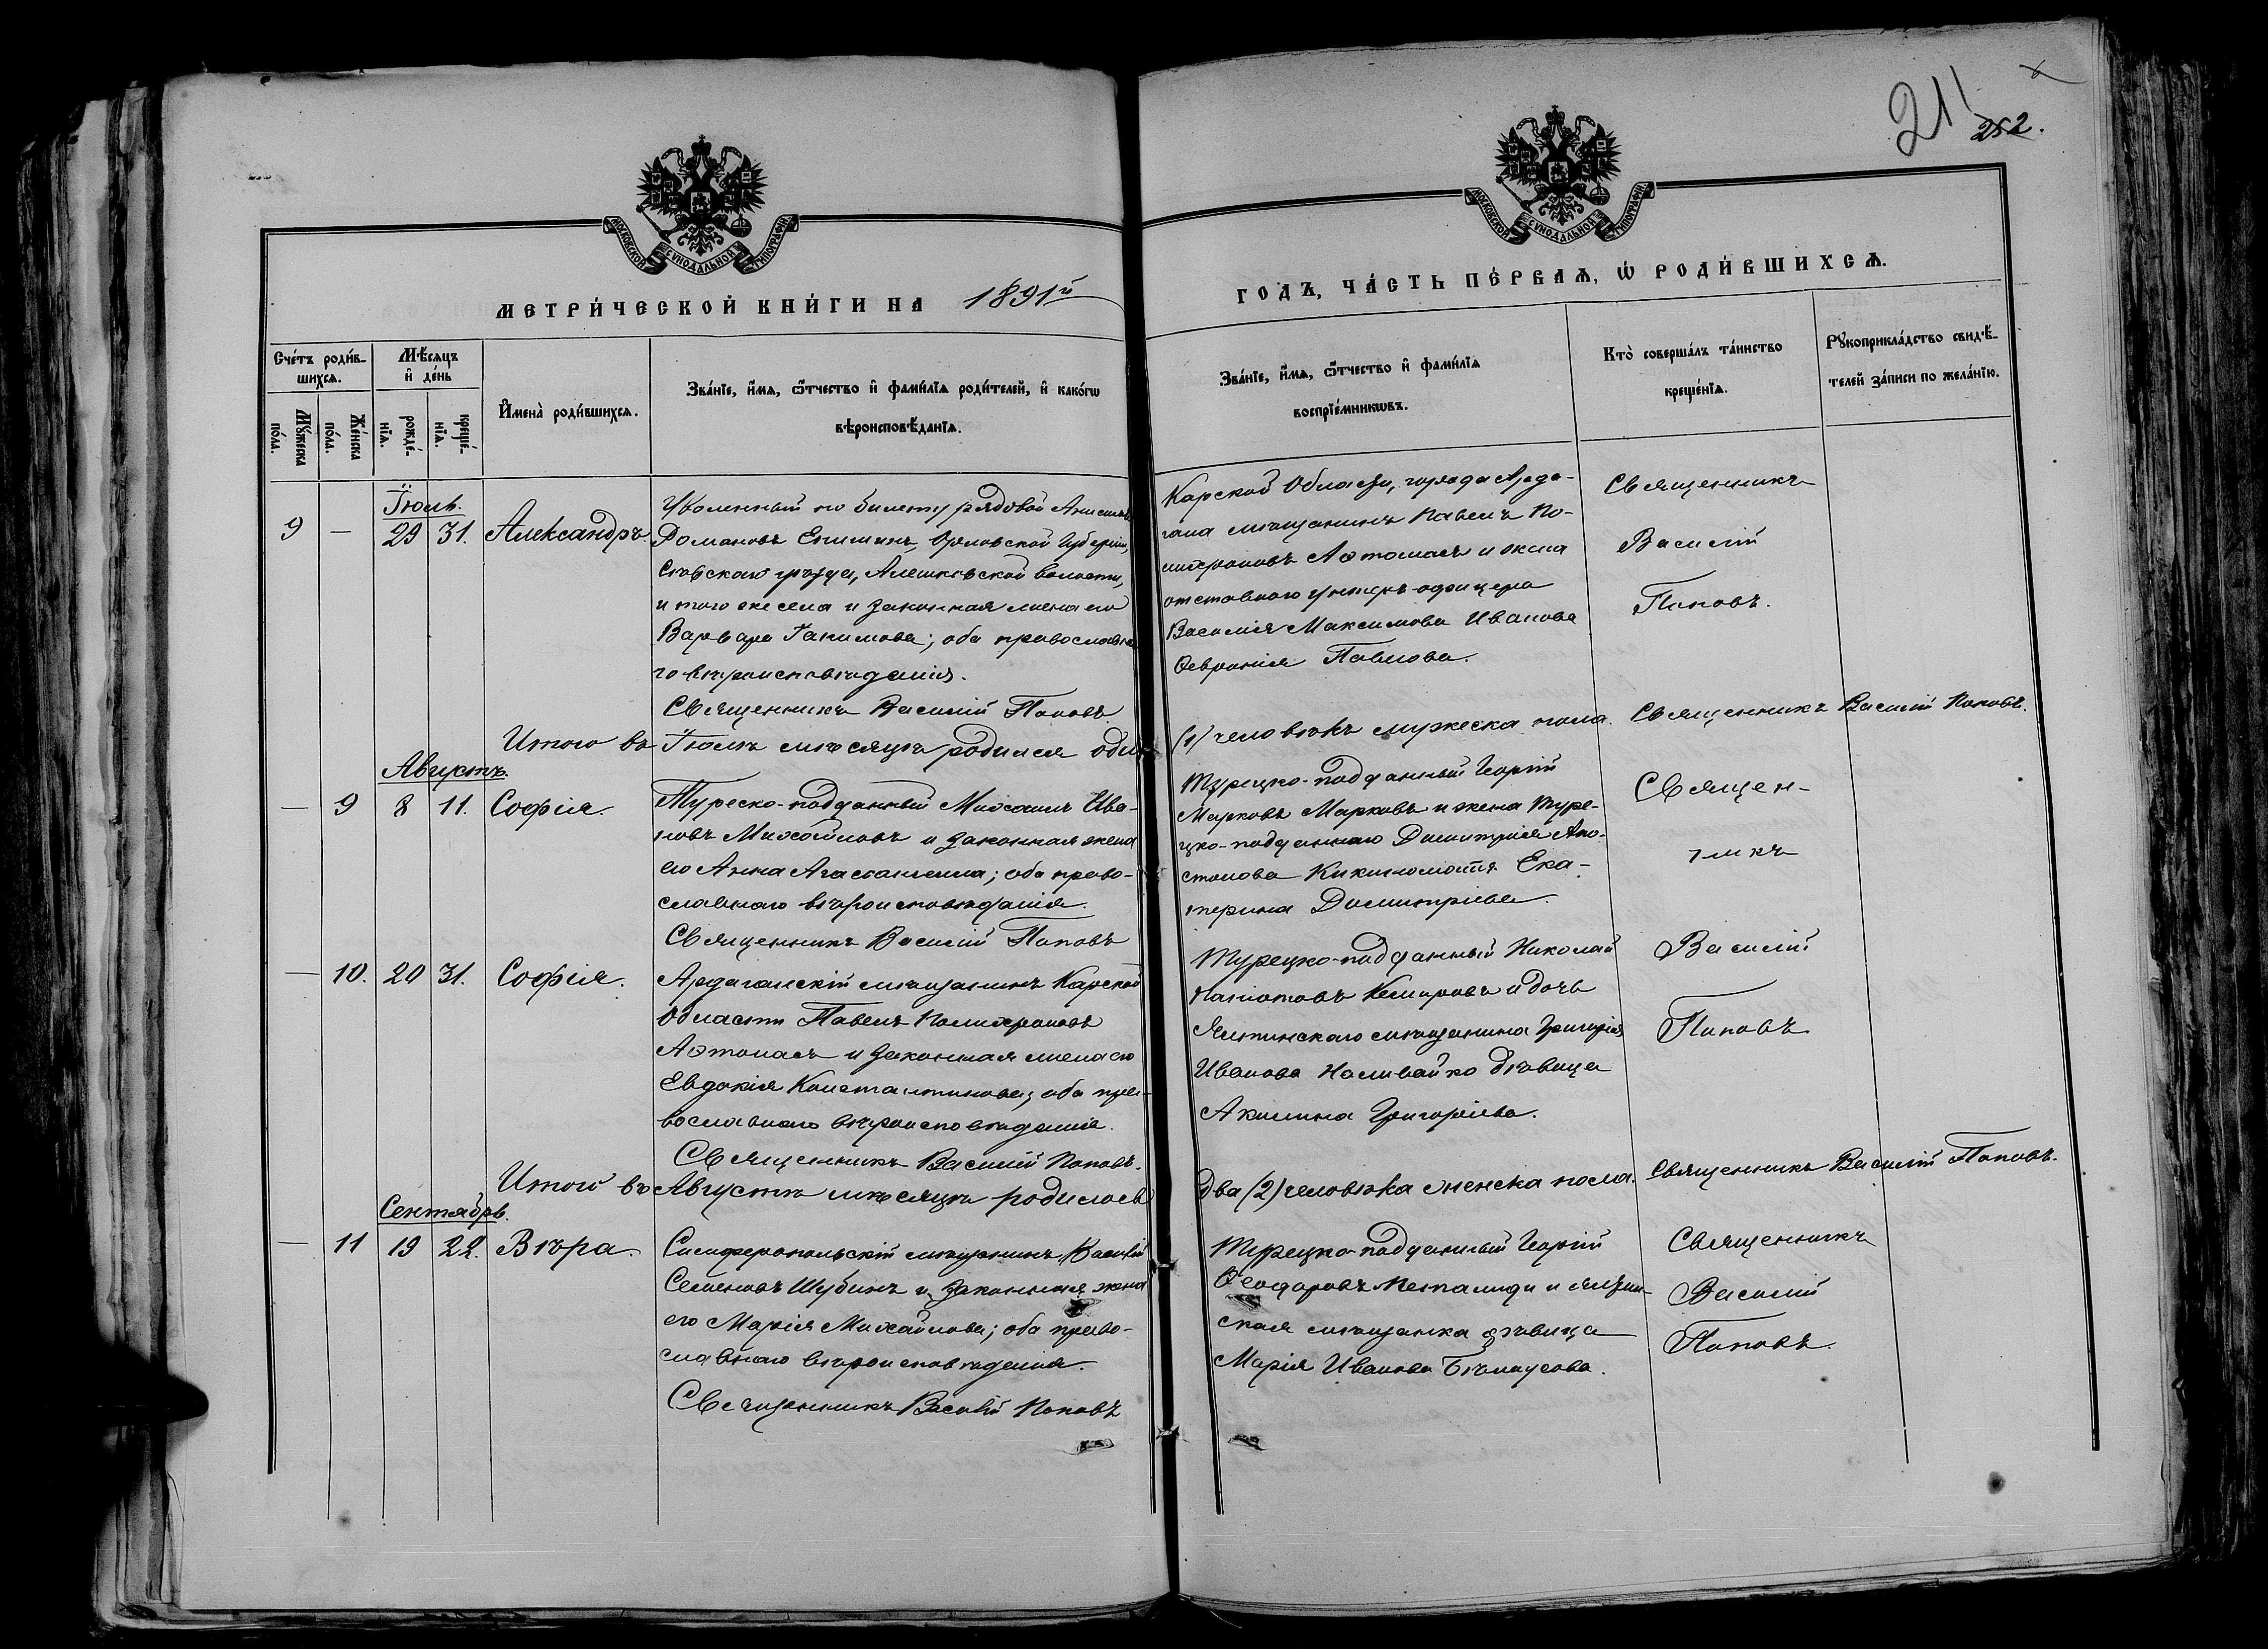 21
252.
МОСКОВСКОЙ СѴНОДАЛЬНОЙ ТИПОГРАФІИ
МОСКОВСКОЙ СѴНОДАЛЬНОЙ ТИПОГРАФІИ
МЕТРИ́ЧЕСКОЙ КНИ́ГИ НА 1891й
ГОДЪ, ЧА́СТЬ ПЕ́РВАѦ, Ѡ҆ РОДИ́ВШИХСѦ.
Сче́тъ роди́в-
шихсѧ.
Мꙋ́жеска по́ла.
Же́нска по́ла.
Мѣ́сѧцъ
и҆ де́нь
рожде́-
нїѧ.
креще́-
нїѧ.
И҆мена̀ роди́вшихсѧ.
Зва́нїе, и҆́мѧ, ѻ҆́тчество и҆ фами́лїѧ роди́телей, и҆ како́гѡ
вѣроисповѣ́данїѧ.
Зва́нїе, и҆́мѧ, ѻ҆́тчество и҆ фами́лїѧ
воспрїе́мникѡвъ.
Кто̀ соверша́лъ та́инство
креще́нїѧ.
Рꙋкоприкла́дство свидѣ́-
телей за́писи по жела́нїю.
Іюль.
9 — 29 31. Александръ.
Уволенный по билету рядовой
Романовъ Орловской Губерніи,
Сѣвскаго уѣзда, Алешковской волости,
и того же села и законная жена его
Варвара; оба православна
го вѣроисповѣданія.
Священникъ Василій Поповъ
Карской Области, города Арда-
гана мѣщанинъ Павелъ По-
лихроновъ и жена
отставного унтеръ-офицера
Василія Максимова Иванова
Февронія Павлова.
Священникъ
Василій
Поповъ.
Итого въ Іюлѣ мѣсяцѣ родился одинъ
(1) человѣкъ мужеска пола. Священникъ Василій Поповъ.
Августъ.
— 9 8 11. Софія.
Туреско-подданный Михаилъ Ива-
новъ Михайловъ и законная жена
его Анна; оба право-
славнаго вѣроисповѣданія.
Священникъ Василій Поповъ
Турецко-подданный Георгій
Марковъ Марковъ и жена Туре-
цко-подданнаго Димитрія Апо-
столова Ека-
терина Димитріева.
Священ-
никъ
— 10. 20 31. Софія.
Ардаганскій мѣщанинъ Карской
Области Павелъ Полихроновъ
и законная жена его
Евдокія Константинова; оба пра-
вославнаго вѣроисповѣданія.
Священникъ Василій Поповъ.
Турецко-подданный Николай
и дочь
Ялтинскаго мѣщанина Григорія
Иванова Наливайко дѣвица
Акилина Григоріева.
Василій
Поповъ
Итого въ Августѣ мѣсяцѣ родилось
два (2) человѣка женска пола. Священникъ Василій Поповъ.
Сентябрь.
— 11 19 22. Вѣра.
Симферопольскій мѣщанинъ Василій
Семеновъ Шубинъ и законная жена
его Марія Михайлова; оба право-
славнаго вѣроисповѣданія.
Священникъ Василій Поповъ
Турецко-подданный Георгій
Феодоровъ и ялтин-
ская мѣщанка дѣвица
Марія Иванова Бѣлоусова.
Священникъ
Василій
Поповъ.